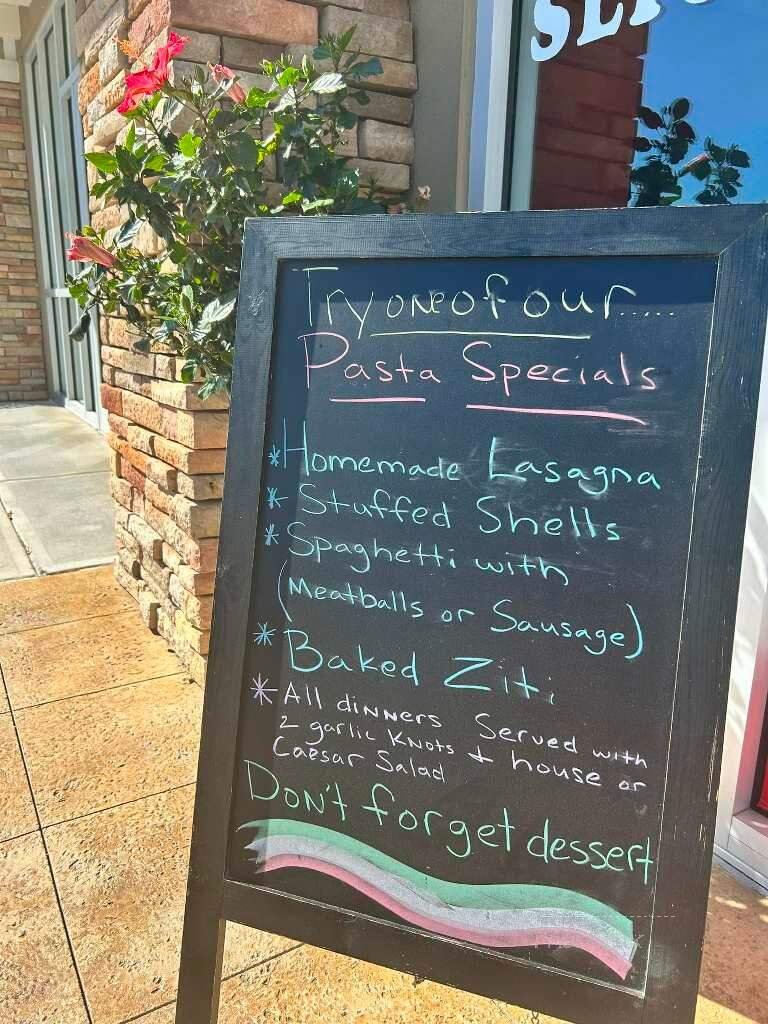 Try one of our.....
Pasta Specials
* Homemade Lasagna
* Stuffed Shells
* Spaghetti with
(Meatballs or Sausage)
* Baked Ziti
* All dinners Served with
2 garlic Knots + house or
Caesar Salad
Don't forget dessert